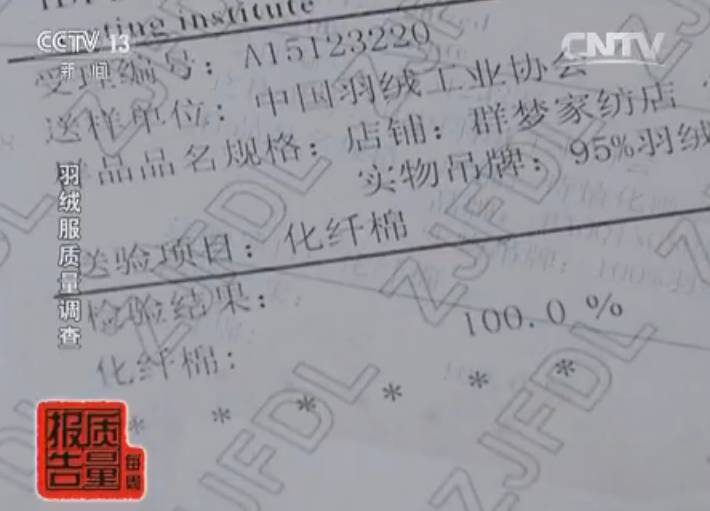 sting institute
CCTV 13
新闻
CNTV
受理编号：A15123220
送样单位：中国羽绒工业协会
样品品名规格：店铺：群梦家纺店
实物吊牌：95%羽绒
送验项目：化纤棉
检验结果：
化纤棉：100.0 %
* * * * * *
羽绒服质量调查
每周
质量
报告
ZJFDL
ZJFDL
ZJFDL